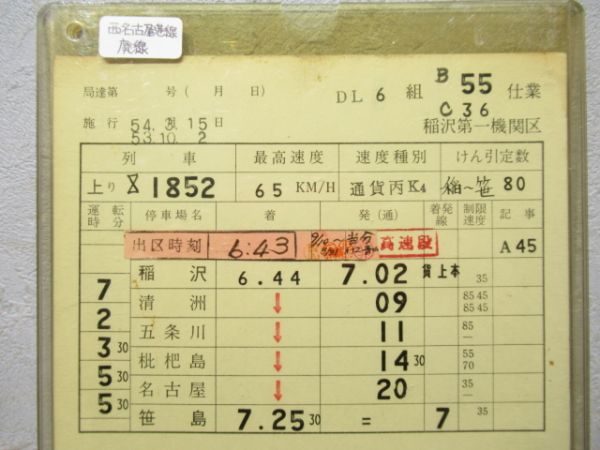 西名古屋港線
廃線
局達第 号( 月 日)
DL 6 組 B 55 仕業
C 36
施行 54.3.15日
53.10.2
稲沢第一機関区
列車 最高速度 速度種別 けん引定数
上り 1852 65 KM/H 通貨丙K4 稲~笹 80
運転時分 停車場名 着 発(通) 着発線 制限速度 記事
出区時刻 6:43 高速段 A 45
稲沢 6.44 7.02 貨上本 35
7 清洲 ↓ 09 85 45 85 45
2 五条川 ↓ 11 85 —
3 30 枇杷島 ↓ 14 30 55 70
5 30 名古屋 ↓ 20 35 —
5 30 笹島 7.25 30 = 7 35